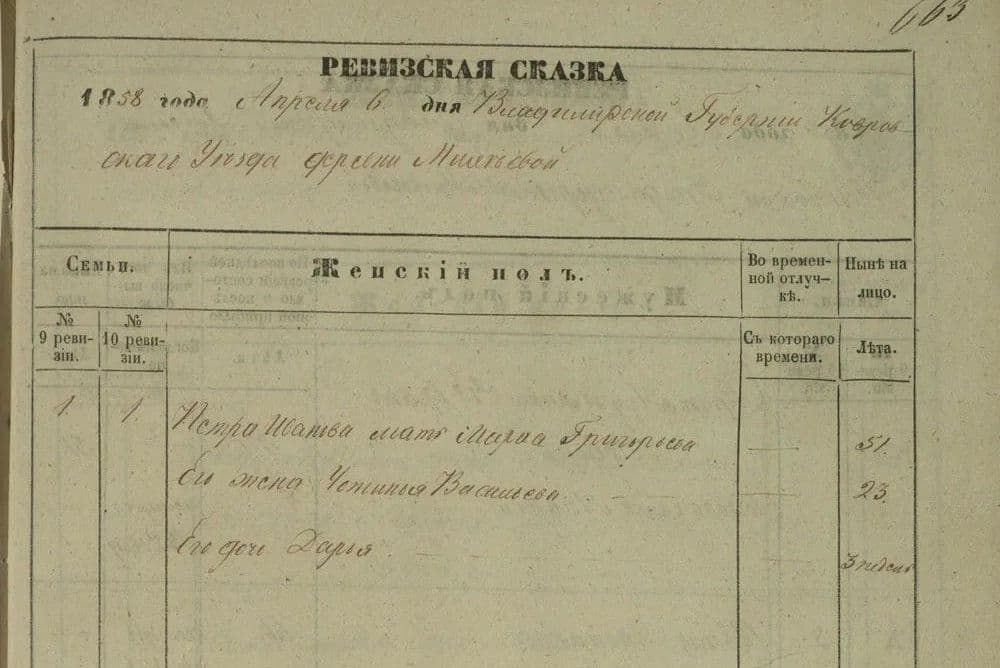 663
РЕВИЗСКАЯ СКАЗКА
1858 года Апреля 6 дня Владимирской Губерніи Ковров
скаго Уѣзда деревни
Семьи.
Женскій полъ.
Во времен-
ной отлуч-
кѣ.
Нынѣ на
лицо.
№
9 реви-
зіи.
№
10 реви-
зіи.
Съ котораго
времени.
Лѣта.
1. 1. Петра Иванова мать Марѳа Григорьева 51.
Его жена Устинья Васильева 23.
Его дочь Дарья 3 недель